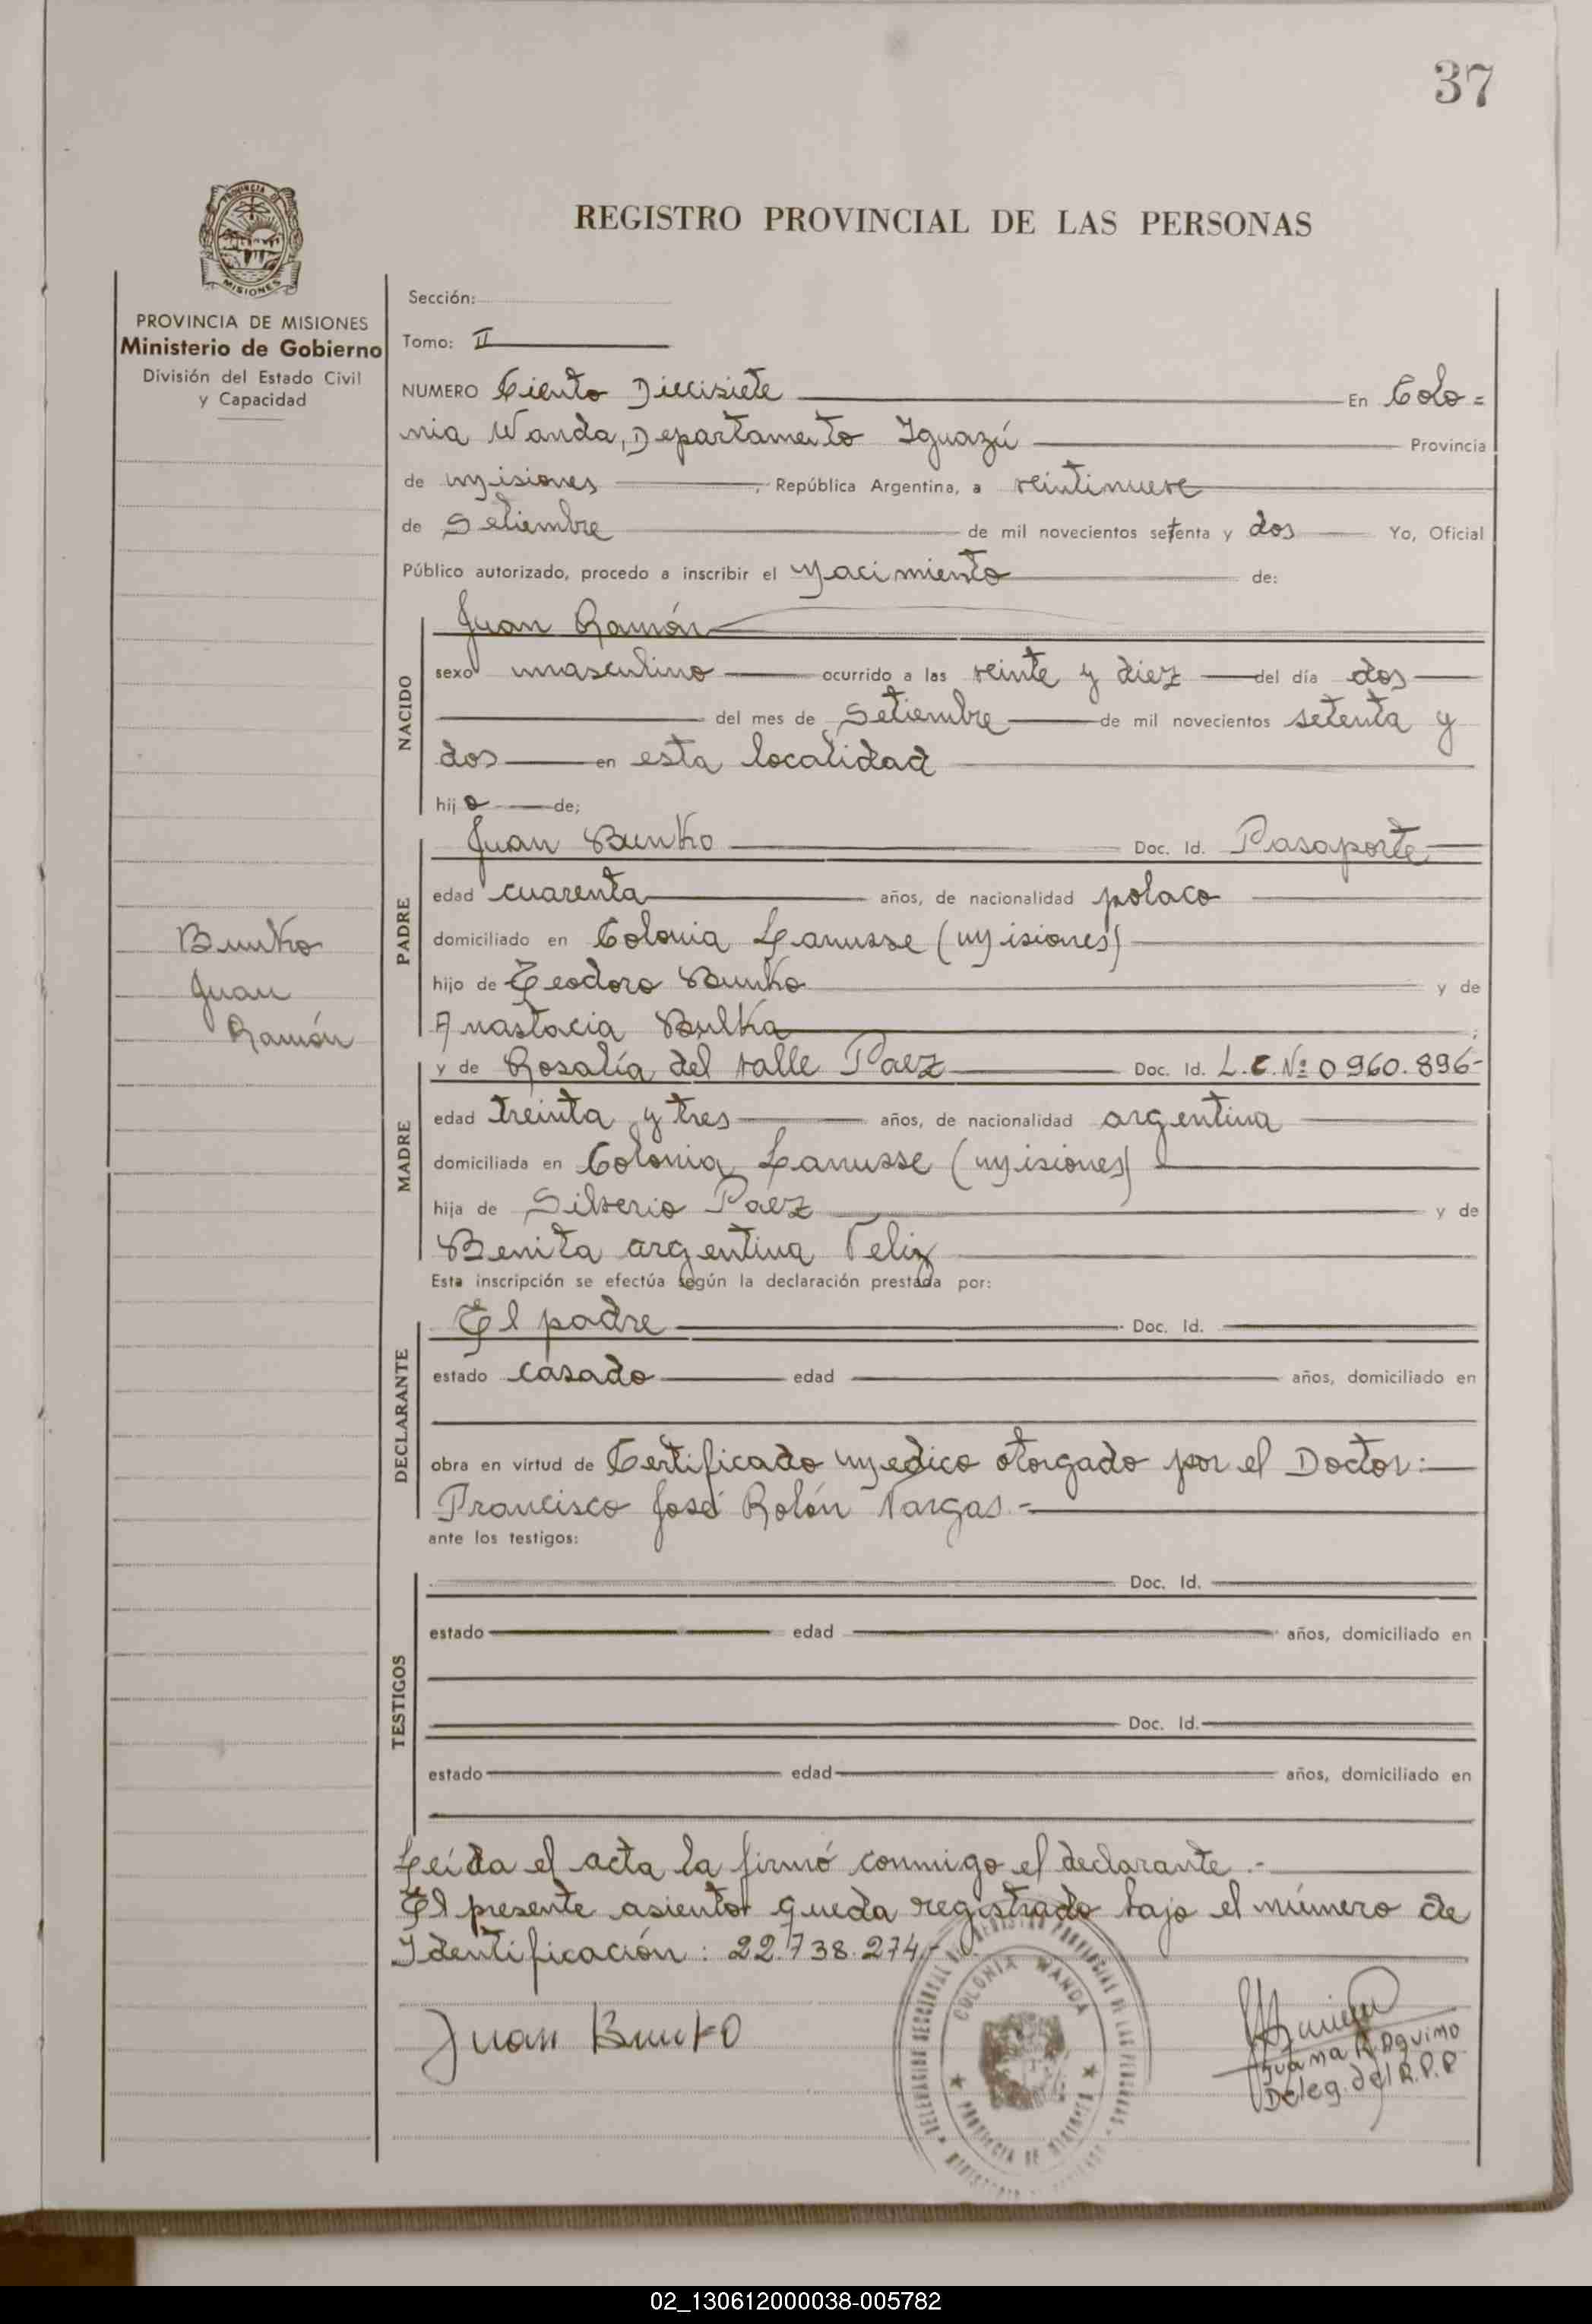 37
PROVINCIA DE
MISIONES
REGISTRO PROVINCIAL DE LAS PERSONAS
PROVINCIA DE MISIONES
Ministerio de Gobierno
División del Estado Civil
y Capacidad
Sección:
Tomo: II
NUMERO Ciento Diecisiete En Colo=
nia Wanda, Departamento Iguazú Provincia
de Misiones, República Argentina, a veintinueve
de Setiembre de mil novecientos setenta y dos Yo, Oficial
Público autorizado, procedo a inscribir el Nacimiento de:
NACIDO
Juan Ramón
sexo masculino ocurrido a las veinte y diez del día dos
del mes de Setiembre de mil novecientos setenta y
dos en esta localidad
hijo de;
PADRE
Juan Bunko Doc. Id. Pasaporte
edad cuarenta años, de nacionalidad polaco
domiciliado en Colonia Lanusse (Misiones)
hijo de Teodoro Bunko y de
Anastacia Bulka;
Bunko
Juan
Ramón
MADRE
y de Rosalía del valle Paez Doc. Id. L.C. Nº 0960.896-
edad treinta y tres años, de nacionalidad argentina
domiciliada en Colonia Lanusse (Misiones)
hija de Silverio Paez y de
Benita argentina Veliz
Esta inscripción se efectúa según la declaración prestada por:
DECLARANTE
El padre Doc. Id.
estado casado edad años, domiciliado en
obra en virtud de Certificado Medico otorgado por el Doctor:
Francisco José Rolón Vargas.-
ante los testigos:
TESTIGOS
Doc. Id.
estado edad años, domiciliado en
Doc. Id.
estado edad años, domiciliado en
Leída el acta la firmó conmigo el declarante.-
El presente asiento queda registrado bajo el número de
Identificación: 22.738.274.-
Juan Bunko
COLONIA WANDA
PROVINCIA DE MISIONES
Juana R. Aquino
Deleg. del R.P.P
02_130612000038-005782